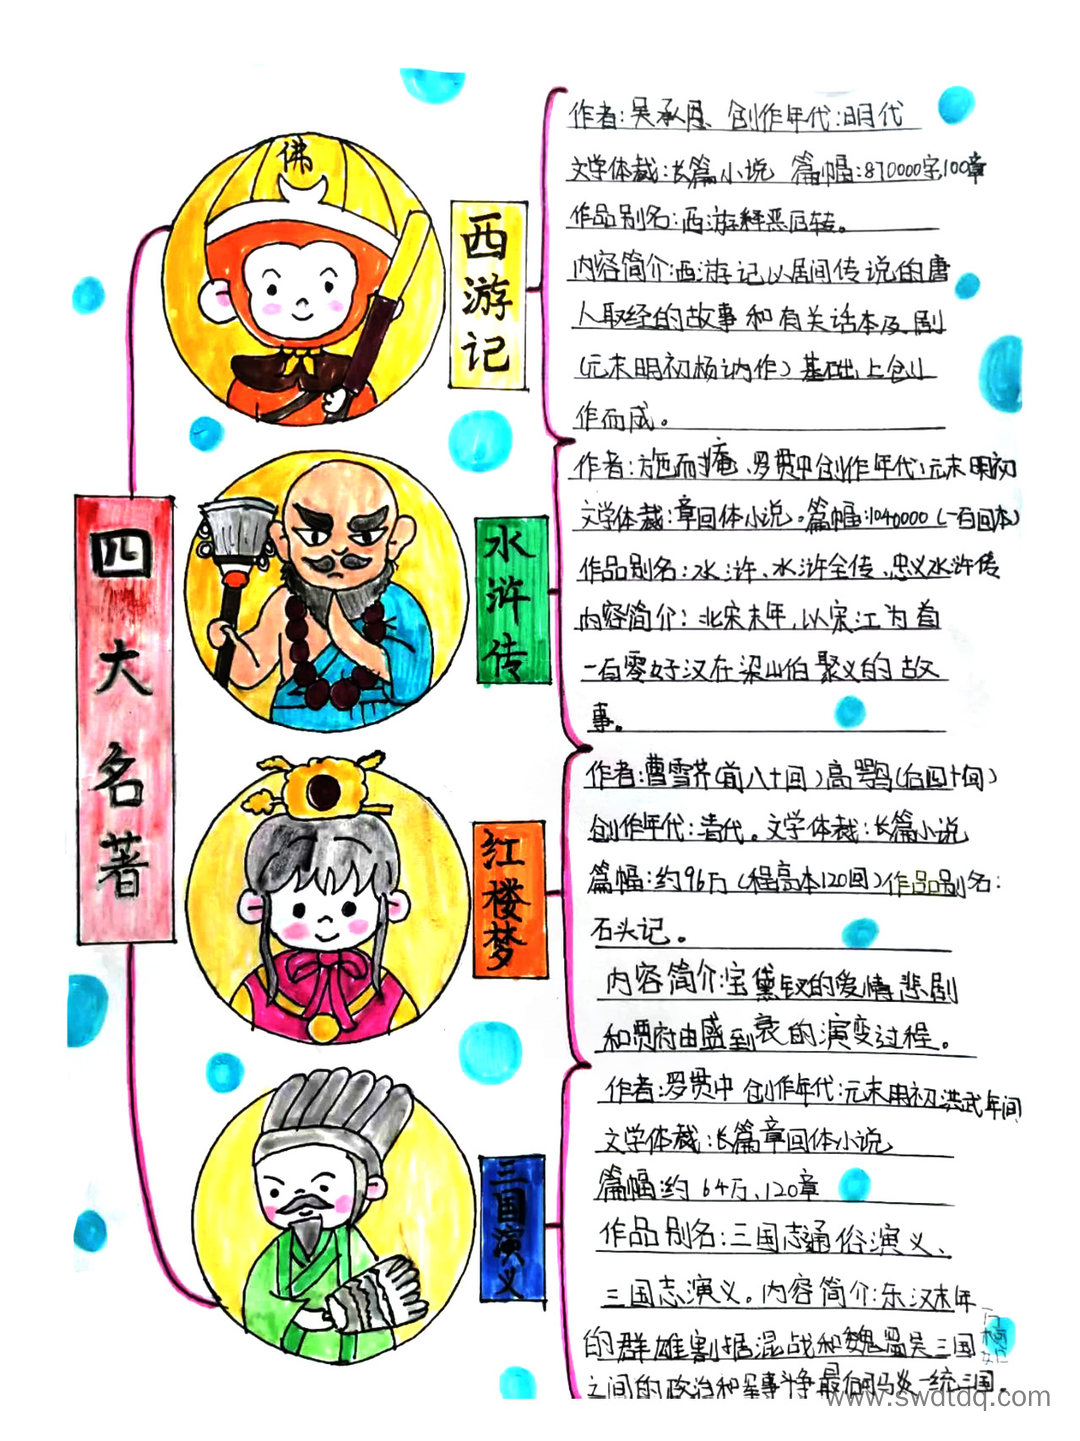 四大名著
佛
西游记
作者:吴承恩 创作年代:明代
文学体裁:长篇小说 篇幅:870000字,100章
作品别名:西游释厄传。
内容简介:西游记以居间传说的唐
人取经的故事和有关话本及剧
(元末明初杨讷作)基础上创
作而成。
水浒传
作者:施耐庵、罗贯中创作年代:元末明初
文学体裁:章回体小说。篇幅:1040000(一百回本)
作品别名:水浒、水浒全传、忠义水浒传
内容简介:北宋末年,以宋江为首
一百零好汉在梁山伯聚义的故
事。
红楼梦
作者:曹雪芹(前八十回)高鹗(后四十回)
创作年代:清代。文学体裁:长篇小说
篇幅:约96万(程高本120回)作品别名:
石头记。
内容简介:宝黛钗的爱情悲剧
和贾府由盛到衰的演变过程。
三国演义
作者:罗贯中 创作年代:元末明初洪武年间
文学体裁:长篇章回体小说
篇幅:约64万、120章
作品别名:三国志通俗演义、
三国志演义。内容简介:东汉末年
的群雄割据混战和魏蜀吴三国
之间的政治和军事斗争最 一统三国。
www.swdtdq.com